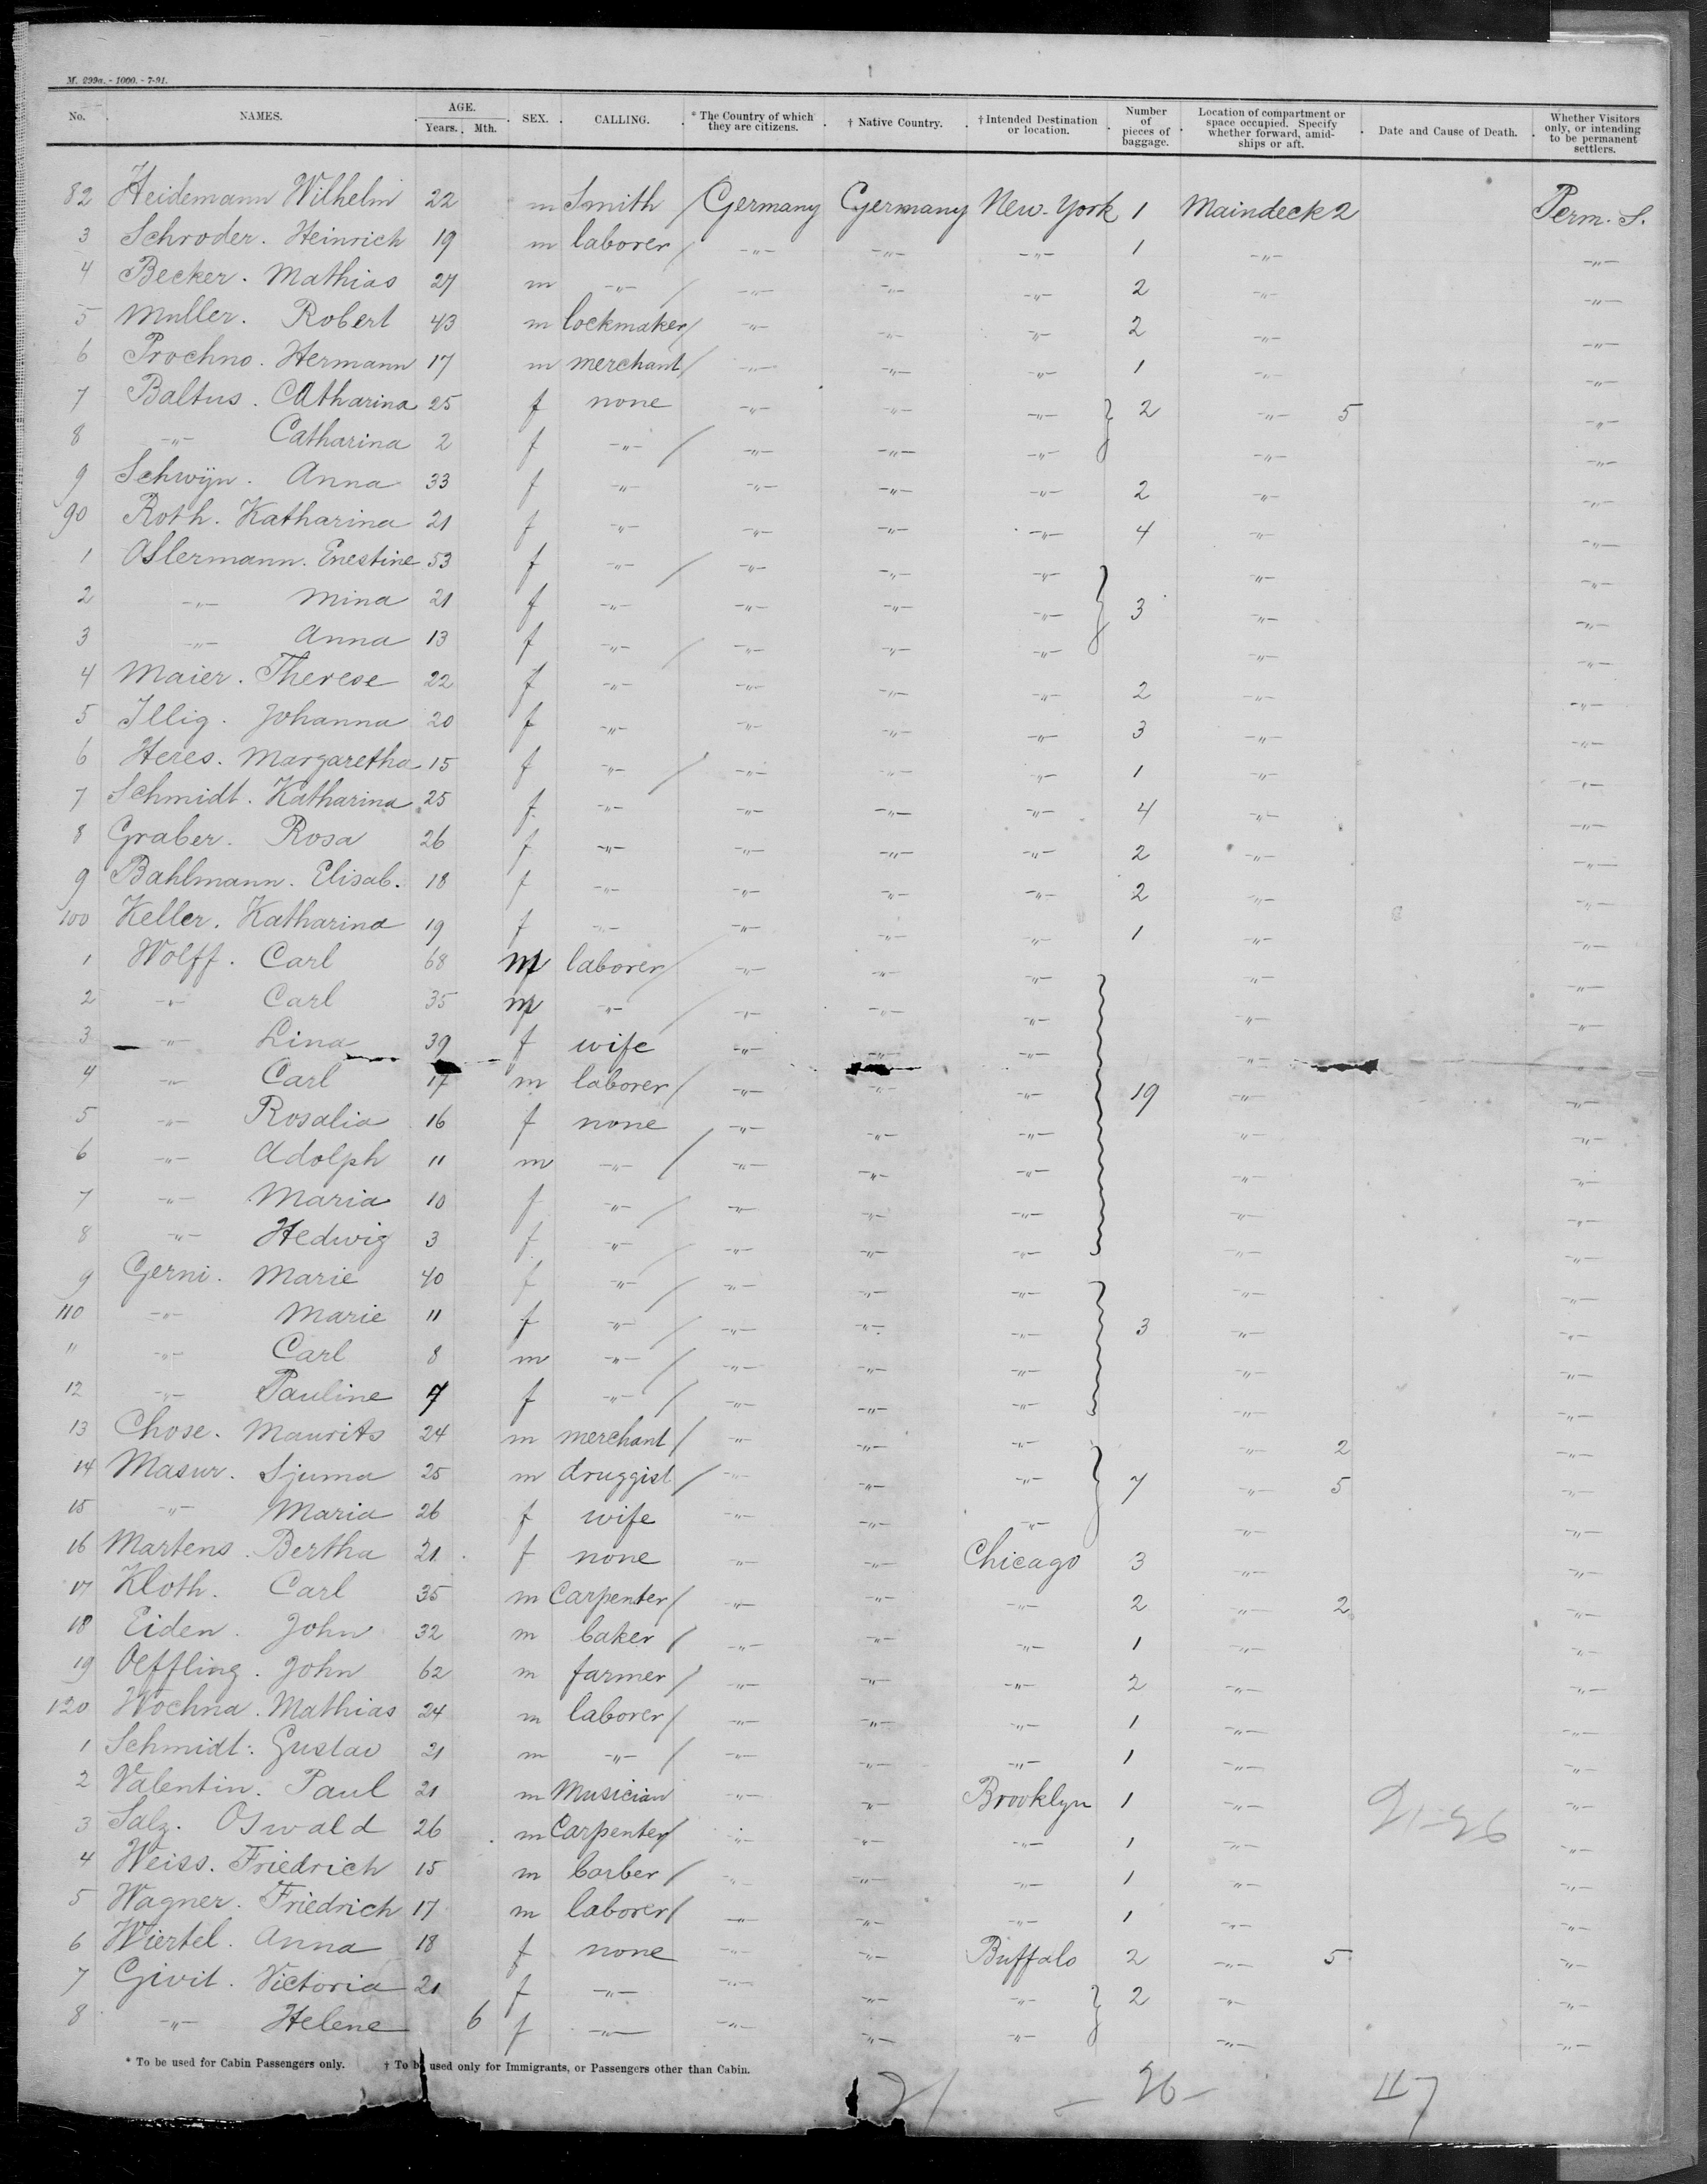 M. 299a. - 1000. - 7-91.
No. NAMES. AGE. Years. Mth. SEX. CALLING. * The Country of which they are citizens. † Native Country. † Intended Destination or location. Number of pieces of baggage. Location of compartment or space occupied. Specify whether forward, amidships or aft. Date and Cause of Death. Whether Visitors only, or intending to be permanent settlers.
82 Heidemann Wilhelm 22 m Smith / Germany Germany New-York 1 Maindeck 2 Perm. S.
3 Schroder. Heinrich 19 m laborer / -"- -"- -"- 1 -"- -"-
4 Becker. Mathias 27 m -"- / -"- -"- -"- 2 -"- -"-
5 Muller. Robert 43 m lockmaker / -"- -"- -"- 2 -"- -"-
6 Prochno. Hermann 17 m merchant / -"- -"- -"- 1 -"- -"-
7 Baltus. Catharina 25 f none -"- -"- -"- } 2 -"- 5 -"-
8 -"- Catharina 2 f -"- / -"- -"- -"- -"- -"-
9 Schwijn. Anna 33 f -"- -"- -"- -"- 2 -"- -"-
90 Roth. Katharina 21 f -"- -"- -"- -"- 4 -"- -"-
1 Ostermann. Enestine 53 f -"- / -"- -"- -"- -"- -"-
2 -"- Mina 21 f -"- -"- -"- -"- } 3 -"- -"-
3 -"- Anna 13 f -"- / -"- -"- -"- -"- -"-
4 Maier. Therese 22 f -"- -"- -"- -"- 2 -"- -"-
5 Illig. Johanna 20 f -"- -"- -"- -"- 3 -"- -"-
6 Heres. Margaretha 15 f -"- / -"- -"- -"- 1 -"- -"-
7 Schmidt. Katharina 25 f. -"- -"- -"- -"- 4 -"- -"-
8 Graber. Rosa 26 f -"- -"- -"- -"- 2 -"- -"-
9 Bahlmann. Elisab. 18 f -"- -"- -"- -"- 2 -"- -"-
100 Keller. Katharina 19 f -"- -"- -"- -"- 1 -"- -"-
1 Wolff. Carl 68 m laborer / -"- -"- -"- -"- -"-
2 -"- Carl 35 m -"- / -"- -"- -"- -"- -"-
3 -"- Lina 39 f wife -"- -"- -"- -"-
4 -"- Carl 17 m laborer / -"- -"- -"- } 19 -"- -"-
5 -"- Rosalia 16 f none -"- -"- -"- -"- -"-
6 -"- Adolph 11 m -"- / -"- -"- -"- -"- -"-
7 -"- Maria 10 f -"- / -"- -"- -"- -"- -"-
8 -"- Hedwig 3 f -"- / -"- -"- -"- -"- -"-
9 Gerni. Marie 40 f -"- / -"- -"- -"- -"- -"-
110 -"- Marie 11 f -"- / -"- -"- -"- } 3 -"- -"-
11 -"- Carl 8 m -"- / -"- -"- -"- -"- -"-
12 -"- Pauline 7 f -"- / -"- -"- -"- -"- -"-
13 Chose. Maurits 24 m merchant / -"- -"- -"- -"- 2 -"-
14 Masur. Sjuma 25 m druggist / -"- -"- -"- } 7 -"- 5 -"-
15 -"- Maria 26 f wife -"- -"- -"- -"- -"-
16 Martens. Bertha 21. f none -"- -"- Chicago 3 -"- -"-
17 Kloth. Carl 35 m Carpenter / -"- -"- -"- 2 -"- 2 -"-
18 Eiden. John 32 m baker / -"- -"- -"- 1 -"- -"-
19 Oeffling. John 62 m farmer / -"- -"- -"- 2 -"- -"-
120 Wochna. Mathias 24 m laborer / -"- -"- -"- 1 -"- -"-
1 Schmidt. Gustav 21 m -"- / -"- -"- -"- 1 -"- -"-
2 Valentin. Paul 21 m Musician -"- -"- Brooklyn 1 -"- -"-
3 Salz. Oswald 26 m Carpenter / -"- -"- -"- 1 -"- -"-
4 Weiss. Friedrich 15 m barber / -"- -"- -"- 1 -"- -"-
5 Wagner. Friedrich 17 m laborer / -"- -"- -"- 1 -"- -"-
6 Wiertel. Anna 18 f none -"- -"- Buffalo 2 -"- 5 -"-
7 Givit. Victoria 21 f -"- -"- -"- -"- } 2 -"- -"-
8 -"- Helene 6 f -"- -"- -"- -"- -"- -"-
* To be used for Cabin Passengers only. † To be used only for Immigrants, or Passengers other than Cabin.
21 - 26 - 47